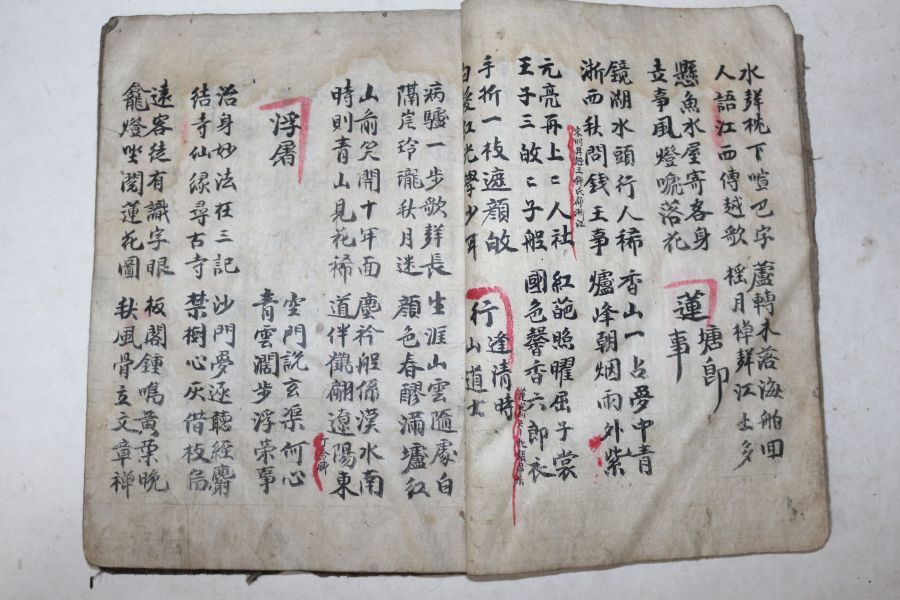 水聲枕下喧巴字 蘆轉木落海舶回
人語江西傳越歌 搖月棹聲江上多
懸魚水屋寄客身
支事風燈嚥落花
蓮塘即事
鏡湖水頭行人稀 香山一占夢中青
浙西秋問錢王事 爐峰朝烟雨外紫
元亮再上〻人社 紅葩照曜屈子裳
王子三皎〻子般 國色馨香六郎衣
手折一枝遮顔皎
白髮紅光學少年
行逢清時山道士
病驢一步歌聲長 生涯山雲隨處白
隔岸玲瓏秋月迷 顔色春醪滿壚紅
山前笑開十年面 塵衿般係漠水南
時則青山見花稀 道伴鶴翩遼陽東
浮屠
空門說玄渠何心
青雲濶步浮榮事
治身妙法在三記 沙門夢逐聽經麝
結寺仙緣尋古寺 禁樹心灰借枝鳥
遠客徒有識字眼 板閣鍾鳴黃葉晩
龕燈坐閱蓮花圖 秋風骨立文章禪